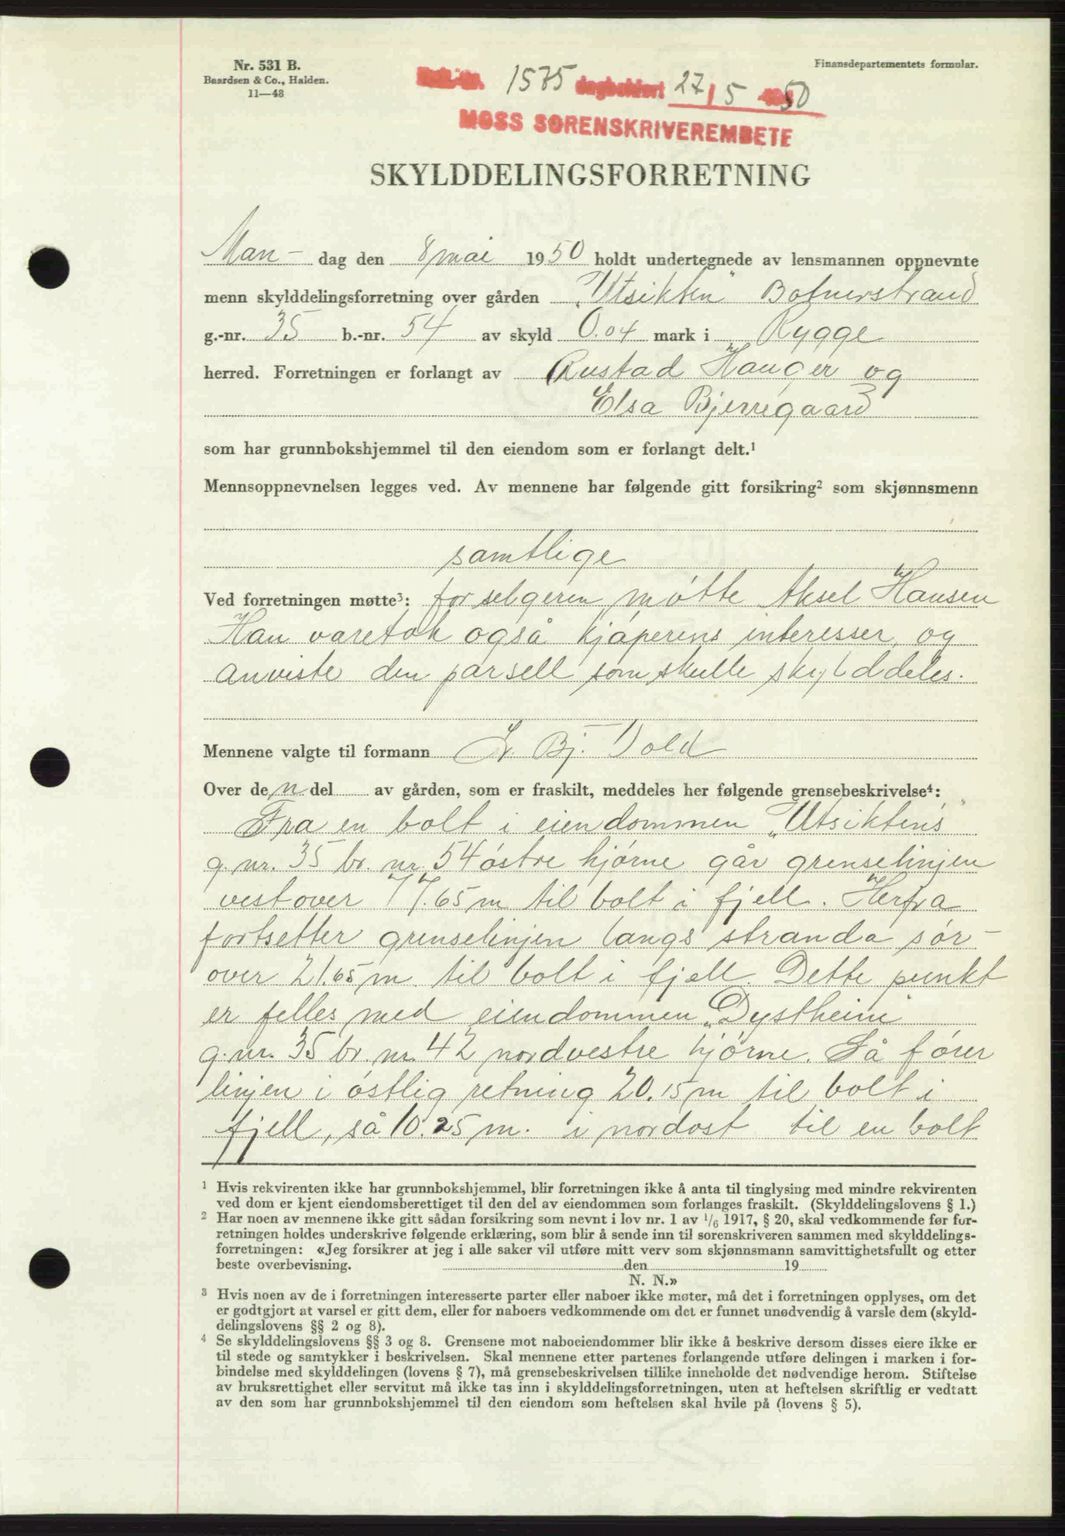 Nr. 531 B.
Baardsen & Co., Halden.
11—48
Finansdepartementets formular.
1575 dagbokført 27/5 1950
MOSS SORENSKRIVEREMBETE
SKYLDDELINGSFORRETNING
Man- dag den 8 mai 1950 holdt undertegnede av lensmannen oppnevnte
menn skylddelingsforretning over gården "Utsikten" Botnerstrand
g.-nr. 35 b.-nr. 54 av skyld 0.04 mark i Rygge
herred. Forretningen er forlangt av Rustad Hauger og
Elsa Bjerregaard
som har grunnbokshjemmel til den eiendom som er forlangt delt.¹
Mennsoppnevnelsen legges ved. Av mennene har følgende gitt forsikring² som skjønnsmenn
samtlige
Ved forretningen møtte³: for selgeren møtte Aksel Hansen
Han varetok også kjøperens interesser, og
anviste den parsell som skulle skylddeles.
Mennene valgte til formann Bj. Dold
Over den del av gården, som er fraskilt, meddeles her følgende grensebeskrivelse⁴:
Fra en bolt i eiendommen "Utsiktens"
g.nr. 35 br. nr. 54 østre hjørne går grenselinjen
vestover 77.65 m til bolt i fjell. Herfra
fortsetter grenselinjen langs stranda sør-
over 21.65 m. til bolt i fjell. Dette punkt
er felles med eiendommen "Dystheim"
g.nr. 35 br. nr. 42 nordvestre hjørne. Så fører
linjen i østlig retning 20.15 m til bolt i
fjell, så 10.25 m. i nordost til en bolt
¹ Hvis rekvirenten ikke har grunnbokshjemmel, blir forretningen ikke å anta til tinglysing med mindre rekvirenten
ved dom er kjent eiendomsberettiget til den del av eiendommen som forlanges fraskilt. (Skylddelingslovens § 1.)
² Har noen av mennene ikke gitt sådan forsikring som nevnt i lov nr. 1 av 1/6 1917, § 20, skal vedkommende før for-
retningen holdes underskrive følgende erklæring, som blir å sende inn til sorenskriveren sammen med skylddelings-
forretningen: «Jeg forsikrer at jeg i alle saker vil utføre mitt verv som skjønnsmann samvittighetsfullt og etter
beste overbevisning. den 19
N. N.»
³ Hvis noen av de i forretningen interesserte parter eller naboer ikke møter, må det i forretningen opplyses, om det
er godtgjort at varsel er gitt dem, eller for naboers vedkommende om det er funnet unødvendig å varsle dem (skyld-
delingslovens §§ 2 og 8).
⁴ Se skylddelingslovens §§ 3 og 8. Grensene mot naboeiendommer blir ikke å beskrive dersom disses eiere ikke er
til stede og samtykker i beskrivelsen. Skal mennene etter partenes forlangende utføre delingen i marken i for-
bindelse med skylddelingen (lovens § 7), må grensebeskrivelsen tillike inneholde det nødvendige herom. Stiftelse
av bruksrettighet eller servitut må ikke tas inn i skylddelingsforretningen, uten at heftelsen skriftlig er vedtatt
av den som har grunnbokshjemmel til den eiendom som heftelsen skal hvile på (lovens § 5).